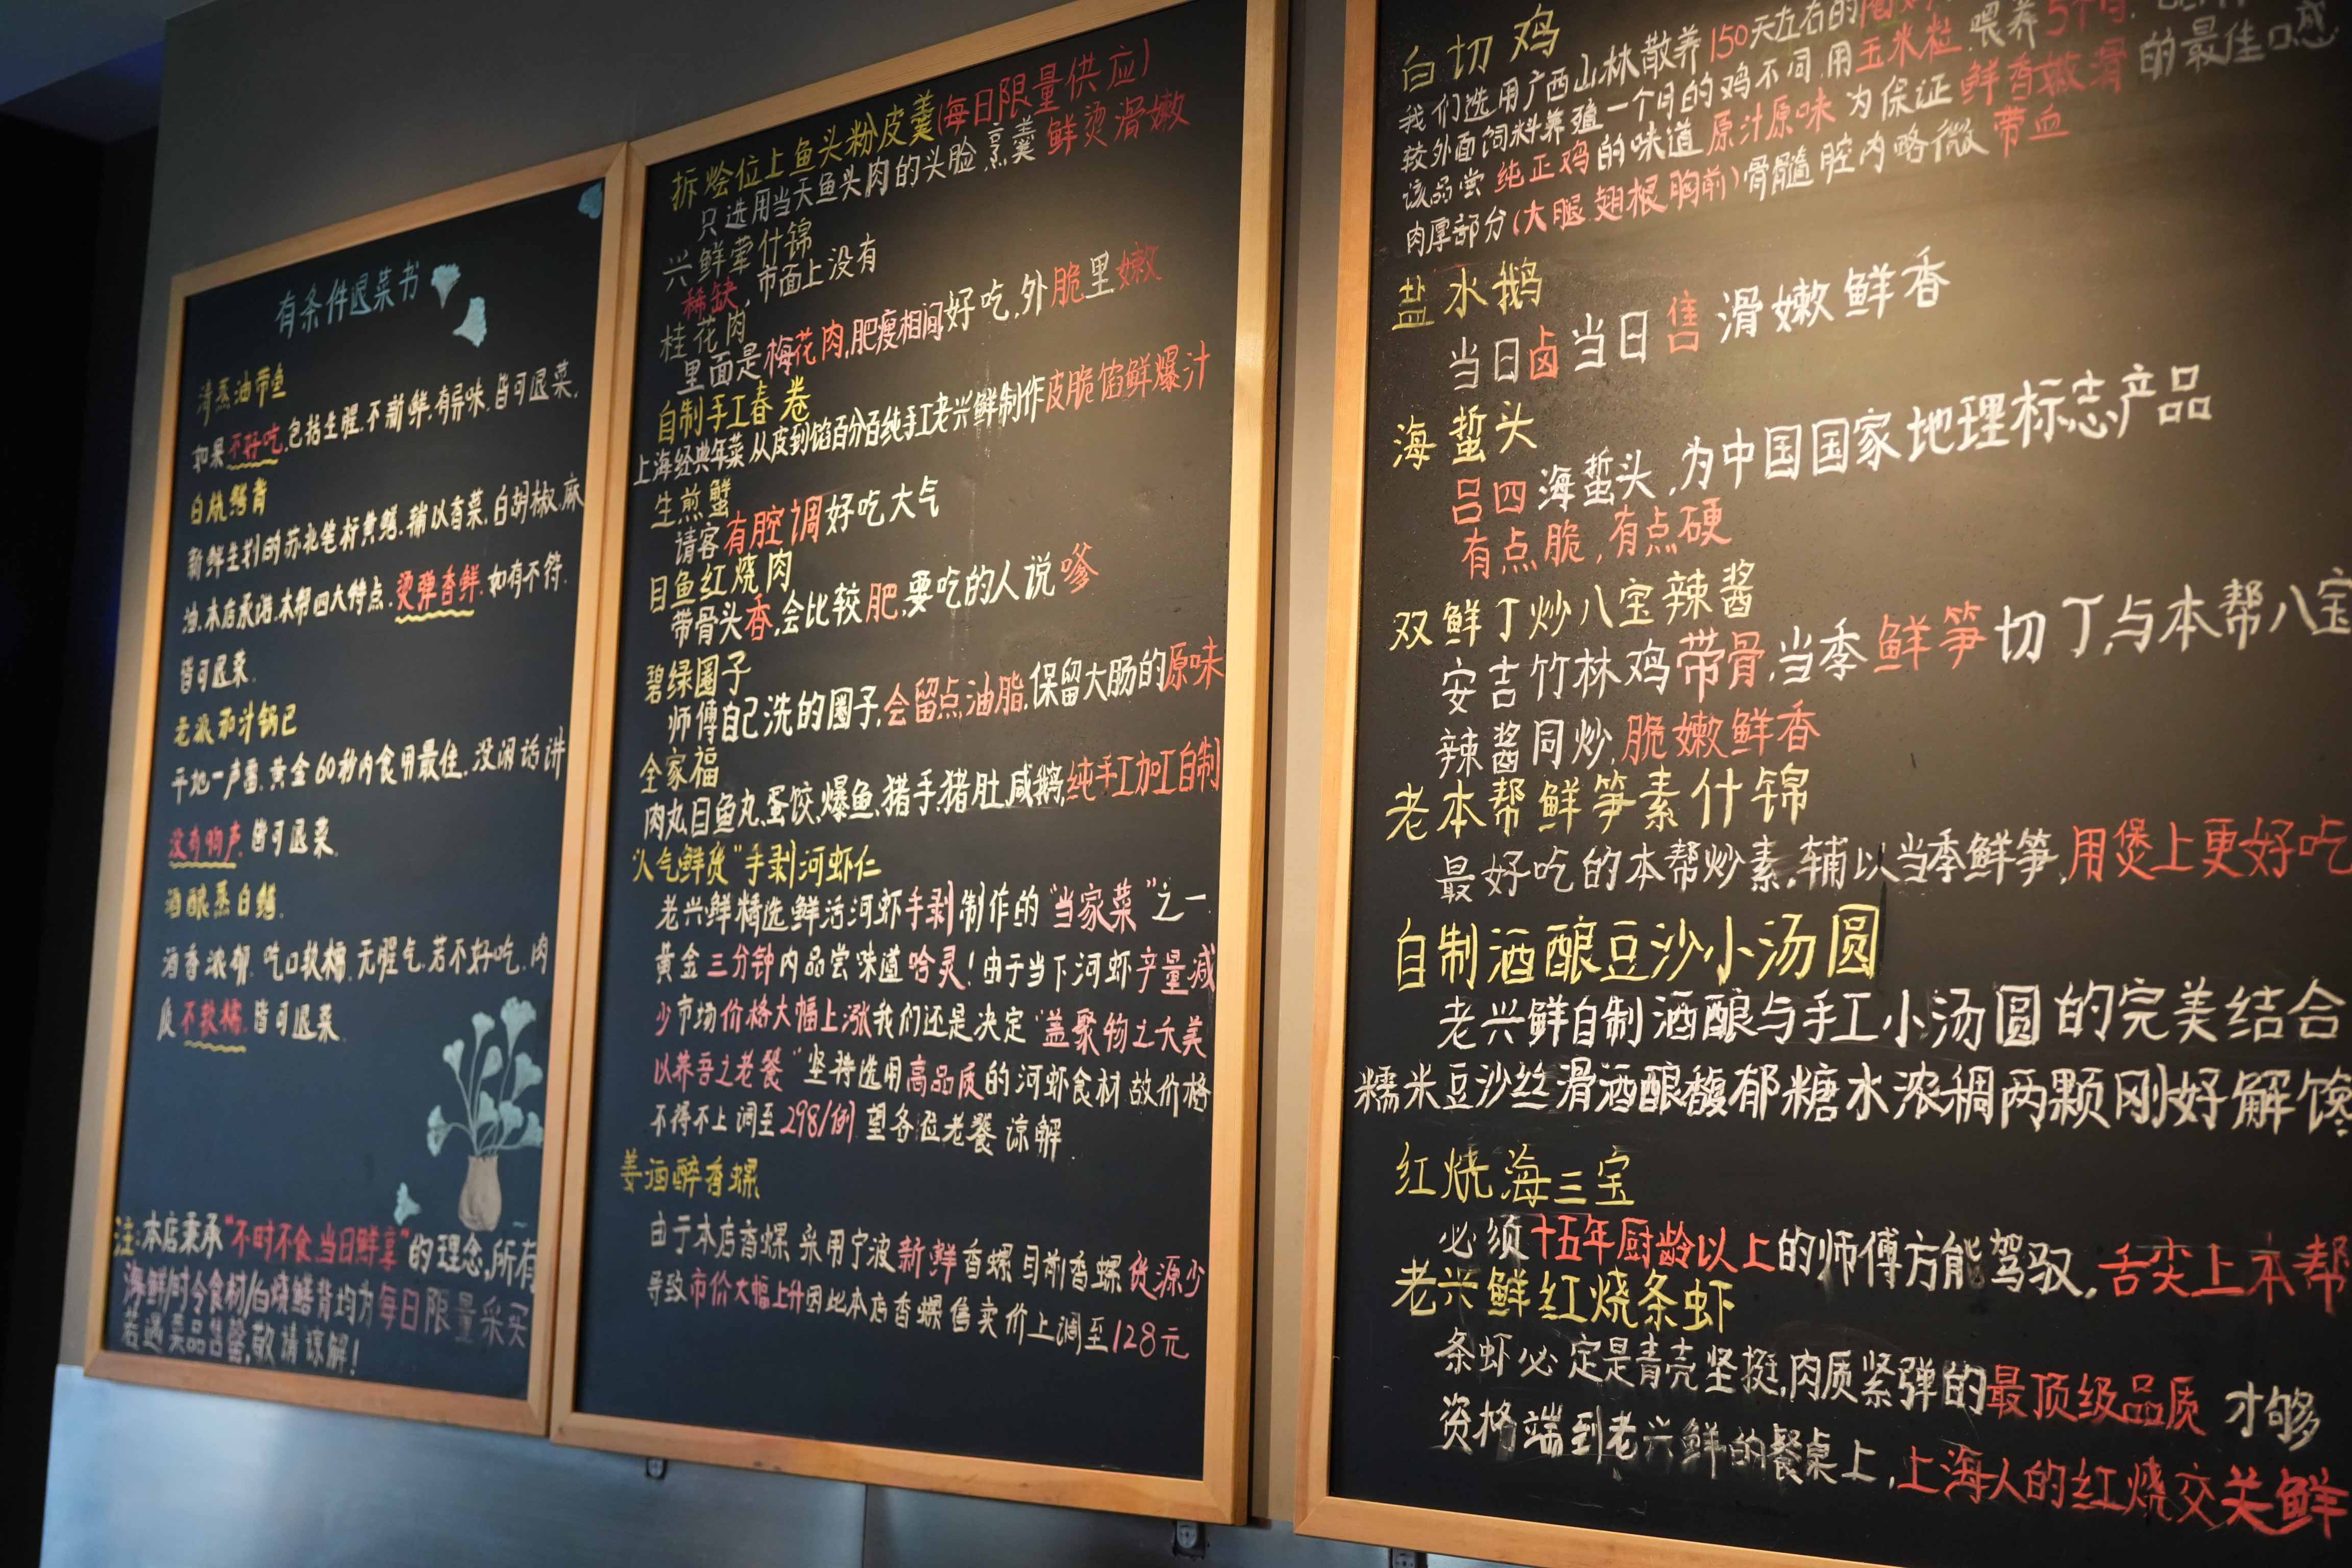 有条件退菜书
清蒸油带鱼
如果不好吃,包括生腥.不新鲜.有异味.皆可退菜.
白烧鳝背
新鲜生划的苏北笔杆黄鳝.辅以香菜.白胡椒.麻
油.本店承诺.本帮四大特点.烫弹香鲜.如有不符.
皆可退菜.
老派茄汁锅巴
平地一声雷.黄金60秒内食用最佳.没闲话讲
没有响声.皆可退菜.
酒酿蒸白鳝.
酒香浓郁.吃口软糯.无腥气.若不好吃.肉
质不软糯.皆可退菜.
注:本店秉承"不时不食.当日鲜享"的理念,所有
海鲜/时令食材/白烧鳝背均为每日限量采买
若遇菜品售罄,敬请谅解!
拆烩位上鱼头粉皮羹(每日限量供应)
只选用当天鱼头肉的头脸,烹羹 鲜烫滑嫩
兴鲜荤什锦
稀缺,市面上没有
桂花肉
里面是梅花肉,肥瘦相间好吃,外脆里嫩
自制手工春卷
上海经典年菜 从皮到馅百分百纯手工老兴鲜制作皮脆馅鲜爆汁
生煎蟹
请客有腔调好吃大气
目鱼红烧肉
带骨头香,会比较肥,要吃的人说嗲
碧绿圈子
师傅自己洗的圈子,会留点油脂,保留大肠的原味
全家福
肉丸.目鱼丸.蛋饺.爆鱼.猪手.猪肚.咸鹅,纯手工加工自制
"人气鲜货"手剥河虾仁
老兴鲜精选鲜活河虾手剥制作的"当家菜"之一
黄金三分钟内品尝味道哈灵!由于当下河虾产量减
少市场价格大幅上涨我们还是决定"盖聚物之夭美
以养吾之老餮"坚持选用高品质的河虾食材故价格
不得不上调至298/例 望各位老餮谅解.
姜酒醉香螺
由于本店香螺采用宁波新鲜香螺目前香螺货源少
导致市价大幅上升因此本店香螺售卖价上调至128元
白切鸡
我们选用广西山林散养150天左右的
较外面饲料养殖一个月的鸡不同.用玉米粒.喂养5个月.
该品尝纯正鸡的味道原汁原味 为保证鲜香嫩滑的最佳口感
肉厚部分(大腿.翅根.胸前)骨髓腔内略微带血
盐水鹅
当日卤当日售 滑嫩鲜香
海蜇头
吕四海蜇头,为中国国家地理标志产品
有点脆,有点硬
双鲜丁炒八宝辣酱
安吉竹林鸡带骨,当季鲜笋切丁,与本帮八宝
辣酱同炒,脆嫩鲜香
老本帮鲜笋素什锦
最好吃的本帮炒素,辅以当季鲜笋,用煲上更好吃
自制酒酿豆沙小汤圆
老兴鲜自制酒酿与手工小汤圆的完美结合
糯米豆沙丝滑酒酿馥郁糖水浓稠两颗刚好解馋
红烧海三宝
必须十五年厨龄以上的师傅方能驾驭,舌尖上本帮
老兴鲜红烧条虾
条虾必定是青壳坚挺,肉质紧弹的最顶级品质 才够
资格端到老兴鲜的餐桌上,上海人的红烧交关鲜